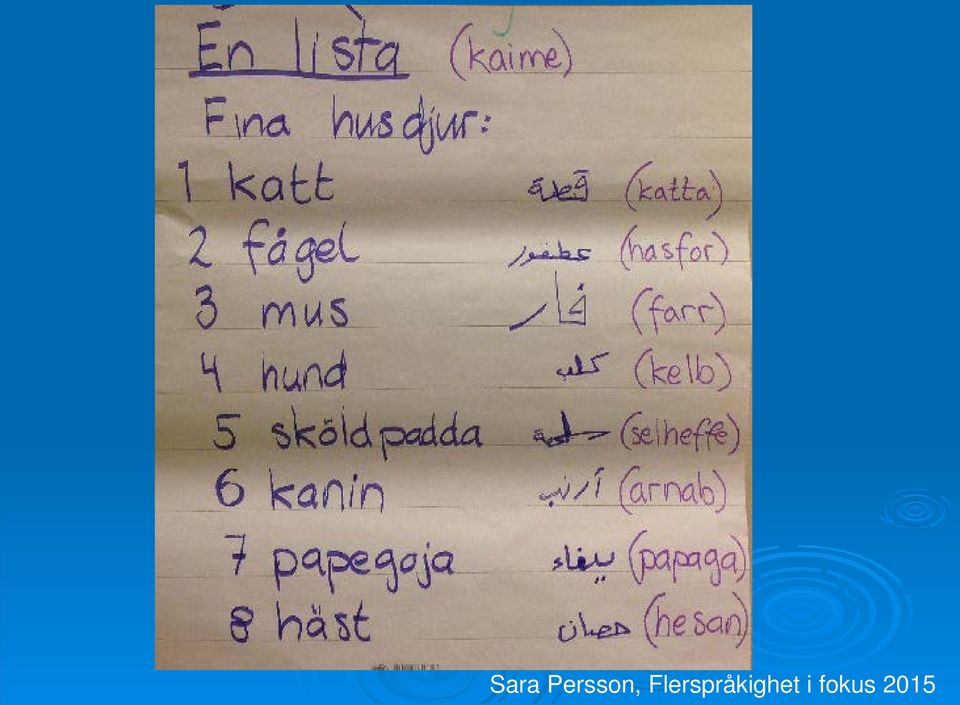 En lista (kaime)
Fina husdjur:
1 katt قطة (katta)
2 fågel عطفور (hasfor)
3 mus فار (farr)
4 hund كلب (kelb)
5 sköldpadda (selheffe)
6 kanin أرنب (arnab)
7 papegoja ببغاء (papaga)
8 häst حصان (hesan)
Sara Persson, Flerspråkighet i fokus 2015